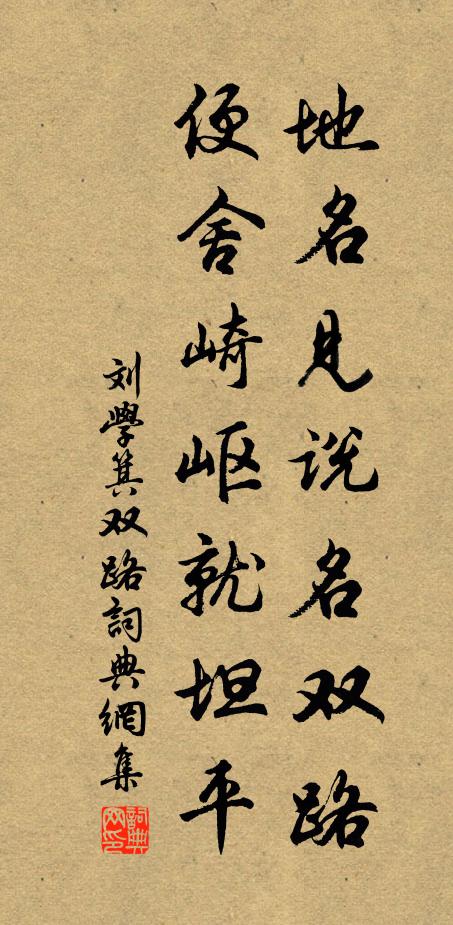 地名见说名双路
便舍崎岖就坦平
刘学箕双路詞典網集
詞典網印